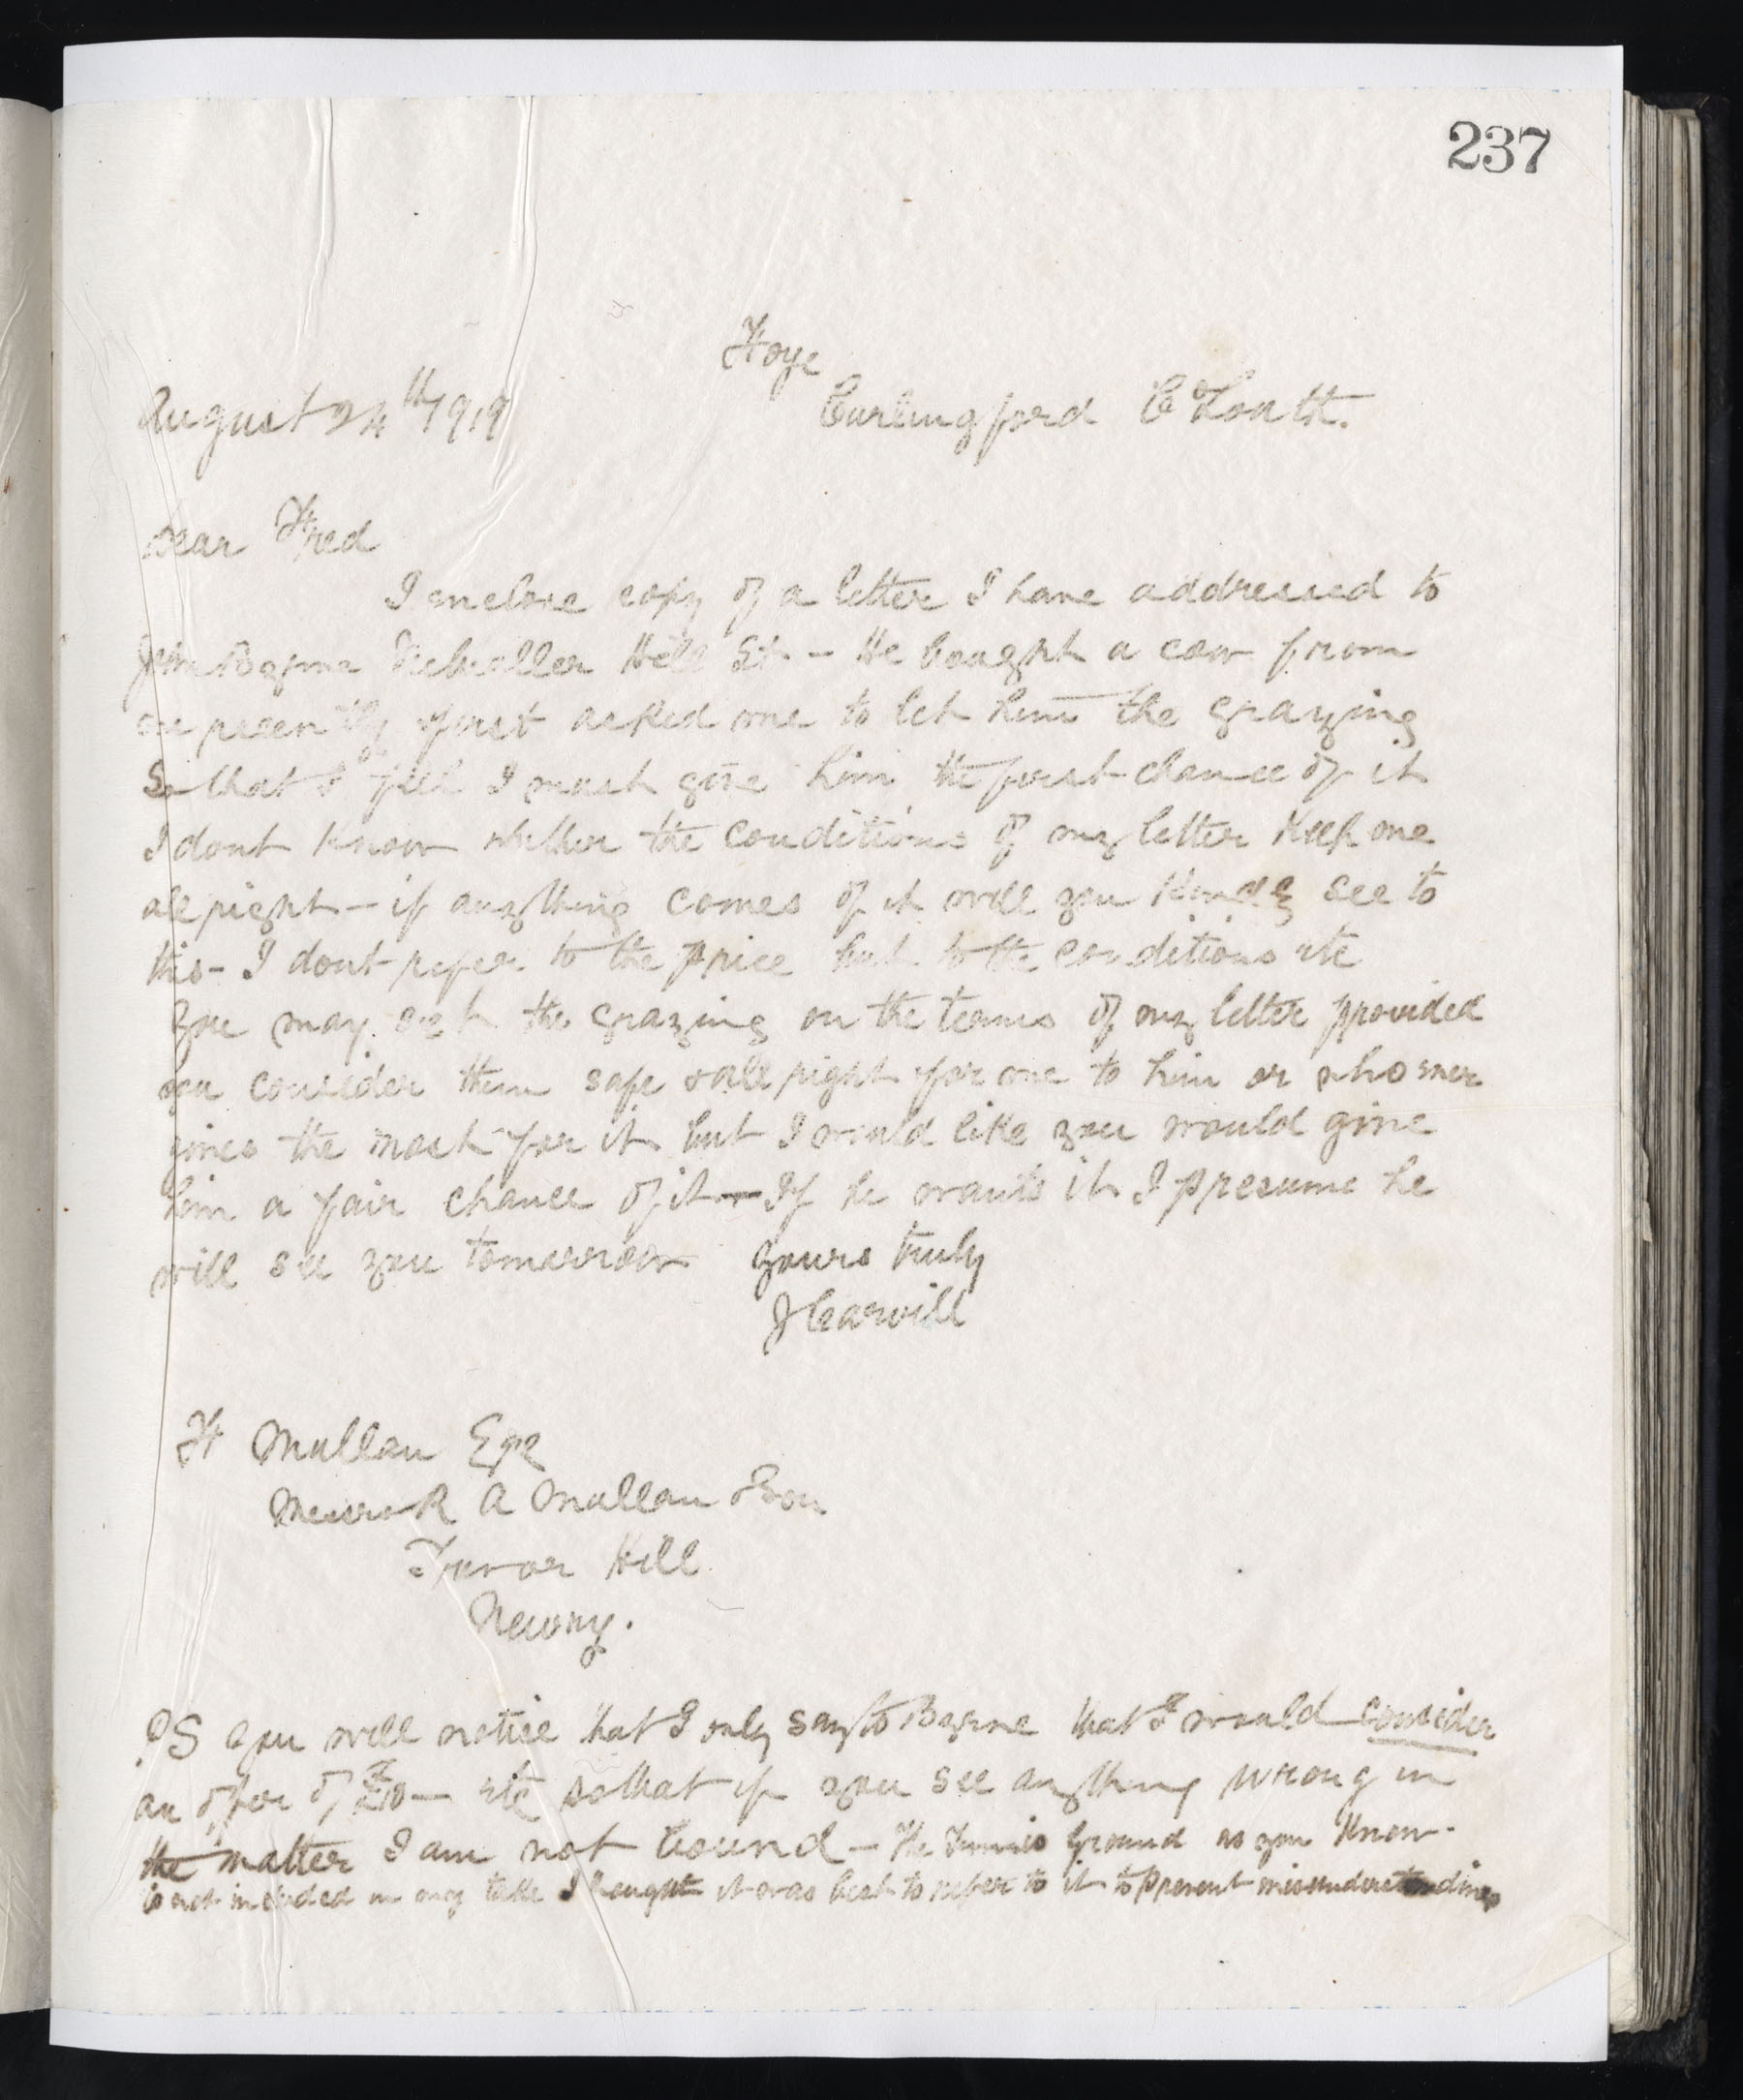 237
Foye
August 24th 1919 Carlingford Co Louth.
Dear Fred
I enclose copy of a letter I have addressed to
John Byrne Victualler Hill St - He bought a cow from
me recently first asked me to let him the grazing
So that I feel I must give him the first chance of it
I dont know whether the conditions of my letter Keep me
all right - if anything comes of it will you Kindly see to
this - I dont refer to the price but to the conditions etc
You may the grazing on the terms of my letter provided
you consider them safe & all right for me to him or whoever
gives the most for it but I would like you would give
him a fair chance of it - If he wants it I presume he
will see you tomorrow Yours truly
J Carvill
F Mullan Esq
Messrs R A Mullan & Son
Trevor Hill
Newry.
PS You will notice that I only say to Byrne that I would consider
an offer of £ - etc so that if you see anything wrong in
the matter I am not bound - The Tennis Ground as you Know -
is not included in my take I thought it was best to refer to it to prevent misunderstandings